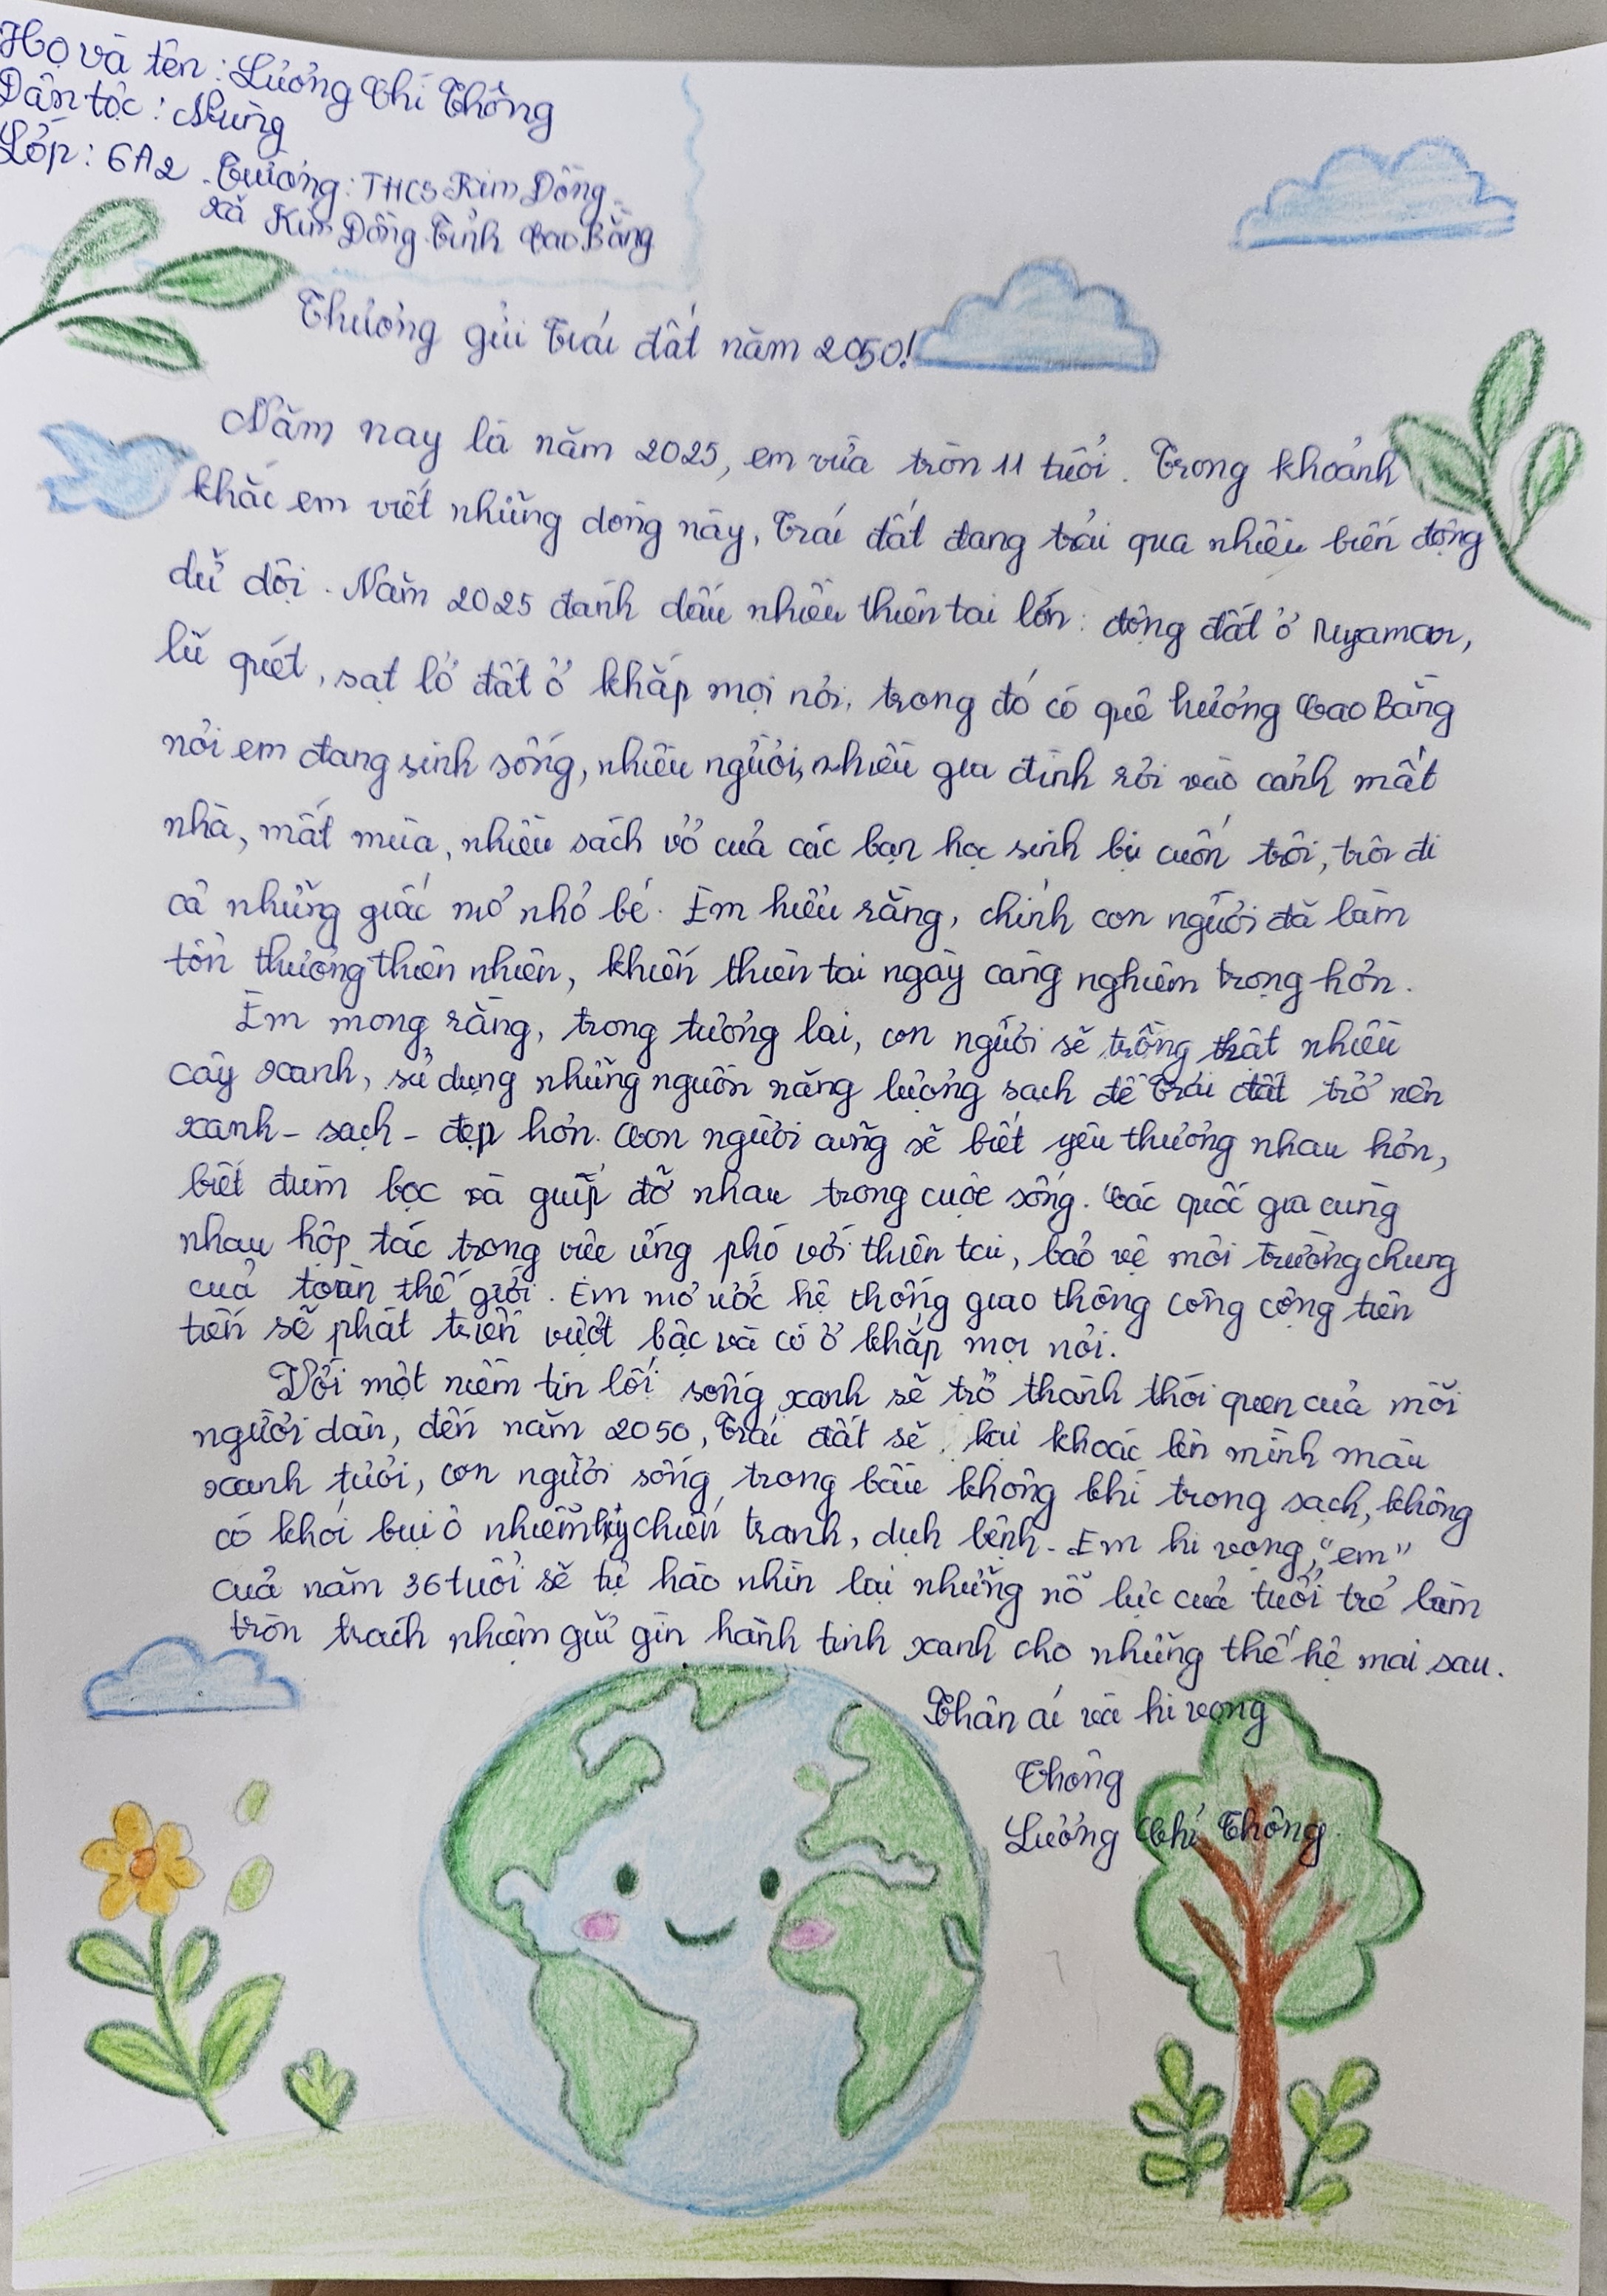 Họ và tên: Lương Chí Thông
Dân tộc: Nùng
Lớp: 6A2. Trường: THCS Kim Đồng
xã Kim Đồng. Tỉnh Cao Bằng
Thương gửi Trái đất năm 2050!
Năm nay là năm 2025, em vừa tròn 11 tuổi. Trong khoảnh
khắc em viết những dòng này, Trái đất đang trải qua nhiều biến động
dữ dội. Năm 2025 đánh dấu nhiều thiên tai lớn: động đất ở Myamar,
lũ quét, sạt lở đất ở khắp mọi nơi, trong đó có quê hương Cao Bằng
nơi em đang sinh sống, nhiều người, nhiều gia đình rơi vào cảnh mất
nhà, mất mùa, nhiều sách vở của các bạn học sinh bị cuốn trôi, trôi đi
cả những giấc mơ nhỏ bé. Em hiểu rằng, chính con người đã làm
tổn thương thiên nhiên, khiến thiên tai ngày càng nghiêm trọng hơn.
Em mong rằng, trong tương lai, con người sẽ trồng thật nhiều
cây xanh, sử dụng những nguồn năng lượng sạch để Trái đất trở nên
xanh - sạch - đẹp hơn. Con người cũng sẽ biết yêu thương nhau hơn,
biết đùm bọc và giúp đỡ nhau trong cuộc sống. Các quốc gia cùng
nhau hợp tác trong việc ứng phó với thiên tai, bảo vệ môi trường chung
của toàn thế giới. Em mơ ước hệ thống giao thông công cộng tiên
tiến sẽ phát triển vượt bậc và có ở khắp mọi nơi.
Với một niềm tin lối sống xanh sẽ trở thành thói quen của mỗi
người dân, đến năm 2050, Trái đất sẽ lại khoác lên mình màu
xanh tươi, con người sống trong bầu không khí trong sạch, không
có khói bụi ô nhiễm hay chiến tranh, dịch bệnh. Em hi vọng, "em"
của năm 36 tuổi sẽ tự hào nhìn lại những nỗ lực của tuổi trẻ làm
tròn trách nhiệm giữ gìn hành tinh xanh cho những thế hệ mai sau.
Thân ái và hi vọng
Thông
Lương Chí Thông